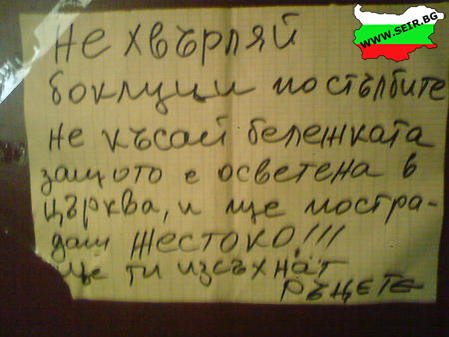 WWW.SEIR.BG
Не хвърляй
боклуци по стълбите
не късай бележката
защото е осветена в
църква, и ще постра-
даш ЖЕСТОКО!!!
ще ти изсъхнат
РЪЦЕТЕ